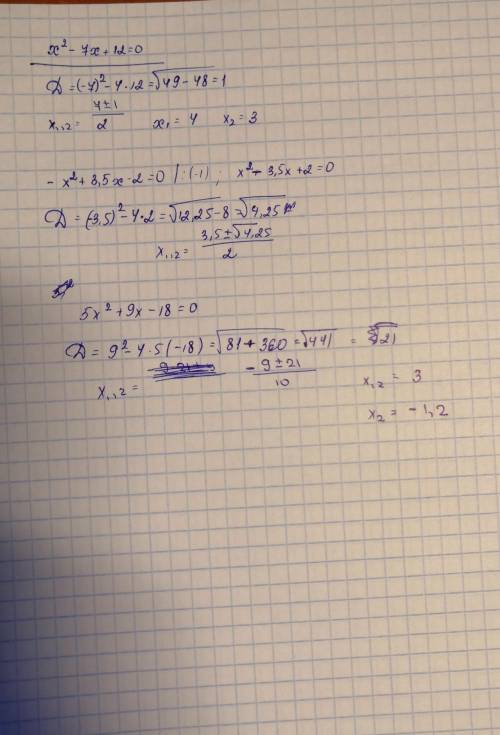 x² - 7x + 12 = 0
D = (-7)² - 4·12 = √49 - 48 = 1
x₁,₂ = 7±1 / 2   x₁ = 4   x₂ = 3
- x² + 3,5x - 2 = 0 | : (-1) ;   x² - 3,5x + 2 = 0
D = (-3,5)² - 4·2 = √12,25 - 8 = √4,25
x₁,₂ = 3,5 ± √4,25 / 2
5x² + 9x - 18 = 0
D = 9² - 4·5(-18) = √81 + 360 = √441 = 21
x₁,₂ = -9 ± 21 / 10   x₁,₂ = 3
x₂ = -1,2